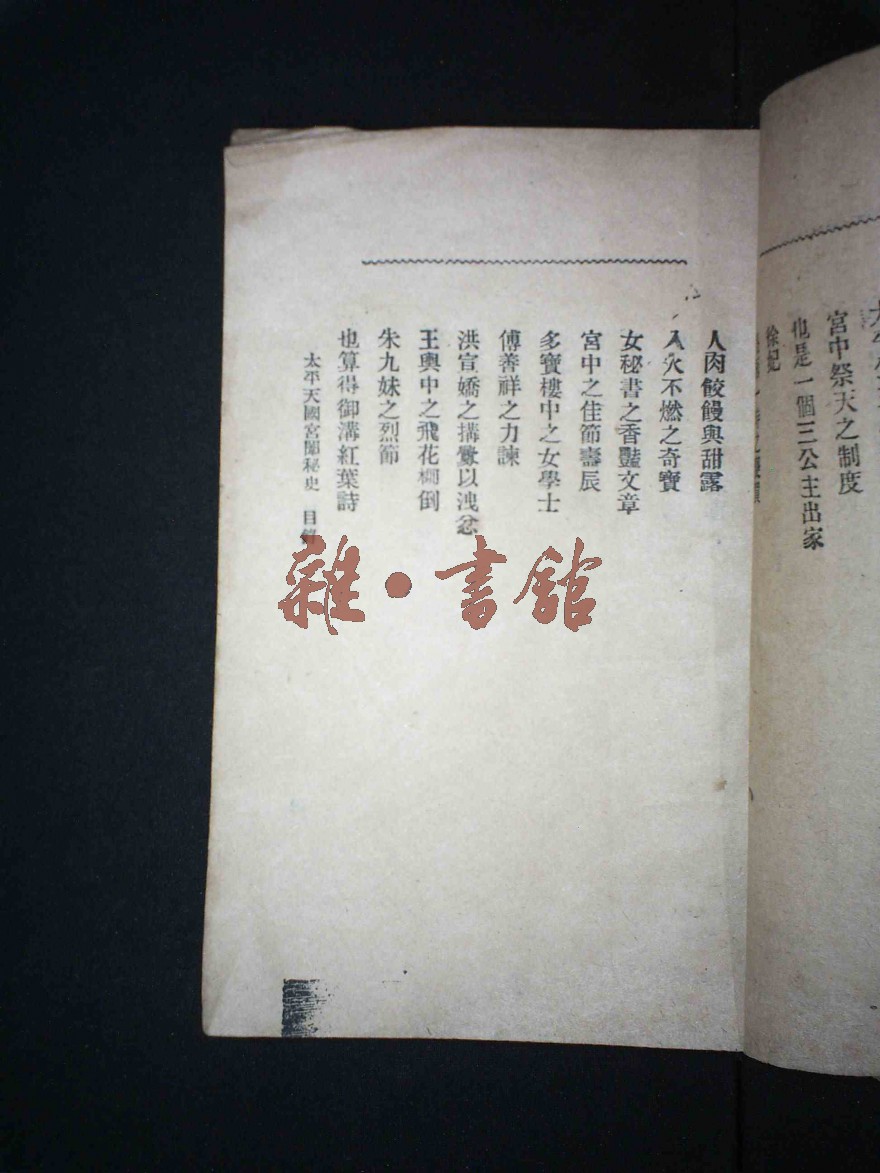 宮中祭天之制度
也是一個三公主出家
徐妃
人肉餃饅與甜露
入火不燃之奇寶
女秘書之香豔文章
宮中之佳節壽辰
多寶樓中之女學士
傅善祥之力諫
洪宣嬌之搆釁以洩忿
王輿中之飛花倒
朱九妹之烈節
也算得御溝紅葉詩
太平天國宮闈秘史 目
雜·書館